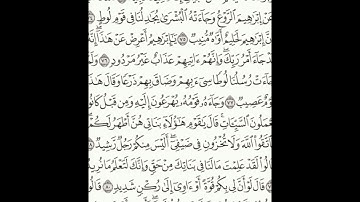 عَنْ إِبْرَٰهِيمَ ٱلرَّوْعُ وَجَآءَتْهُ ٱلْبُشْرَىٰ يُجَٰدِلُنَا فِى قَوْمِ لُوطٍ
إِنَّ إِبْرَٰهِيمَ لَحَلِيمٌ أَوَّٰهٌ مُّنِيبٌ ٧٥ يَٰٓإِبْرَٰهِيمُ أَعْرِضْ عَنْ هَٰذَآ
قَدْ جَآءَ أَمْرُ رَبِّكَ وَإِنَّهُمْ ءَاتِيهِمْ عَذَابٌ غَيْرُ مَرْدُودٍ ٧٦ وَلَمَّا
جَآءَتْ رُسُلُنَا لُوطًا سِىٓءَ بِهِمْ وَضَاقَ بِهِمْ ذَرْعًا وَقَالَ هَٰذَا
يَوْمٌ عَصِيبٌ ٧٧ وَجَآءَهُۥ قَوْمُهُۥ يُهْرَعُونَ إِلَيْهِ وَمِن قَبْلُ كَانُوا۟
يَعْمَلُونَ ٱلسَّيِّـَٔاتِ قَالَ يَٰقَوْمِ هَٰٓؤُلَآءِ بَنَاتِى هُنَّ أَطْهَرُ لَكُمْ
فَٱتَّقُوا۟ ٱللَّهَ وَلَا تُخْزُونِ فِى ضَيْفِىٓ أَلَيْسَ مِنكُمْ رَجُلٌ رَّشِيدٌ ٧٨
قَالُوا۟ لَقَدْ عَلِمْتَ مَا لَنَا فِى بَنَاتِكَ مِنْ حَقٍّ وَإِنَّكَ لَتَعْلَمُ مَا نُرِيدُ ٧٩
قَالَ لَوْ أَنَّ لِى بِكُمْ قُوَّةً أَوْ ءَاوِىٓ إِلَىٰ رُكْنٍ شَدِيدٍ ٨٠ قَالُوا۟